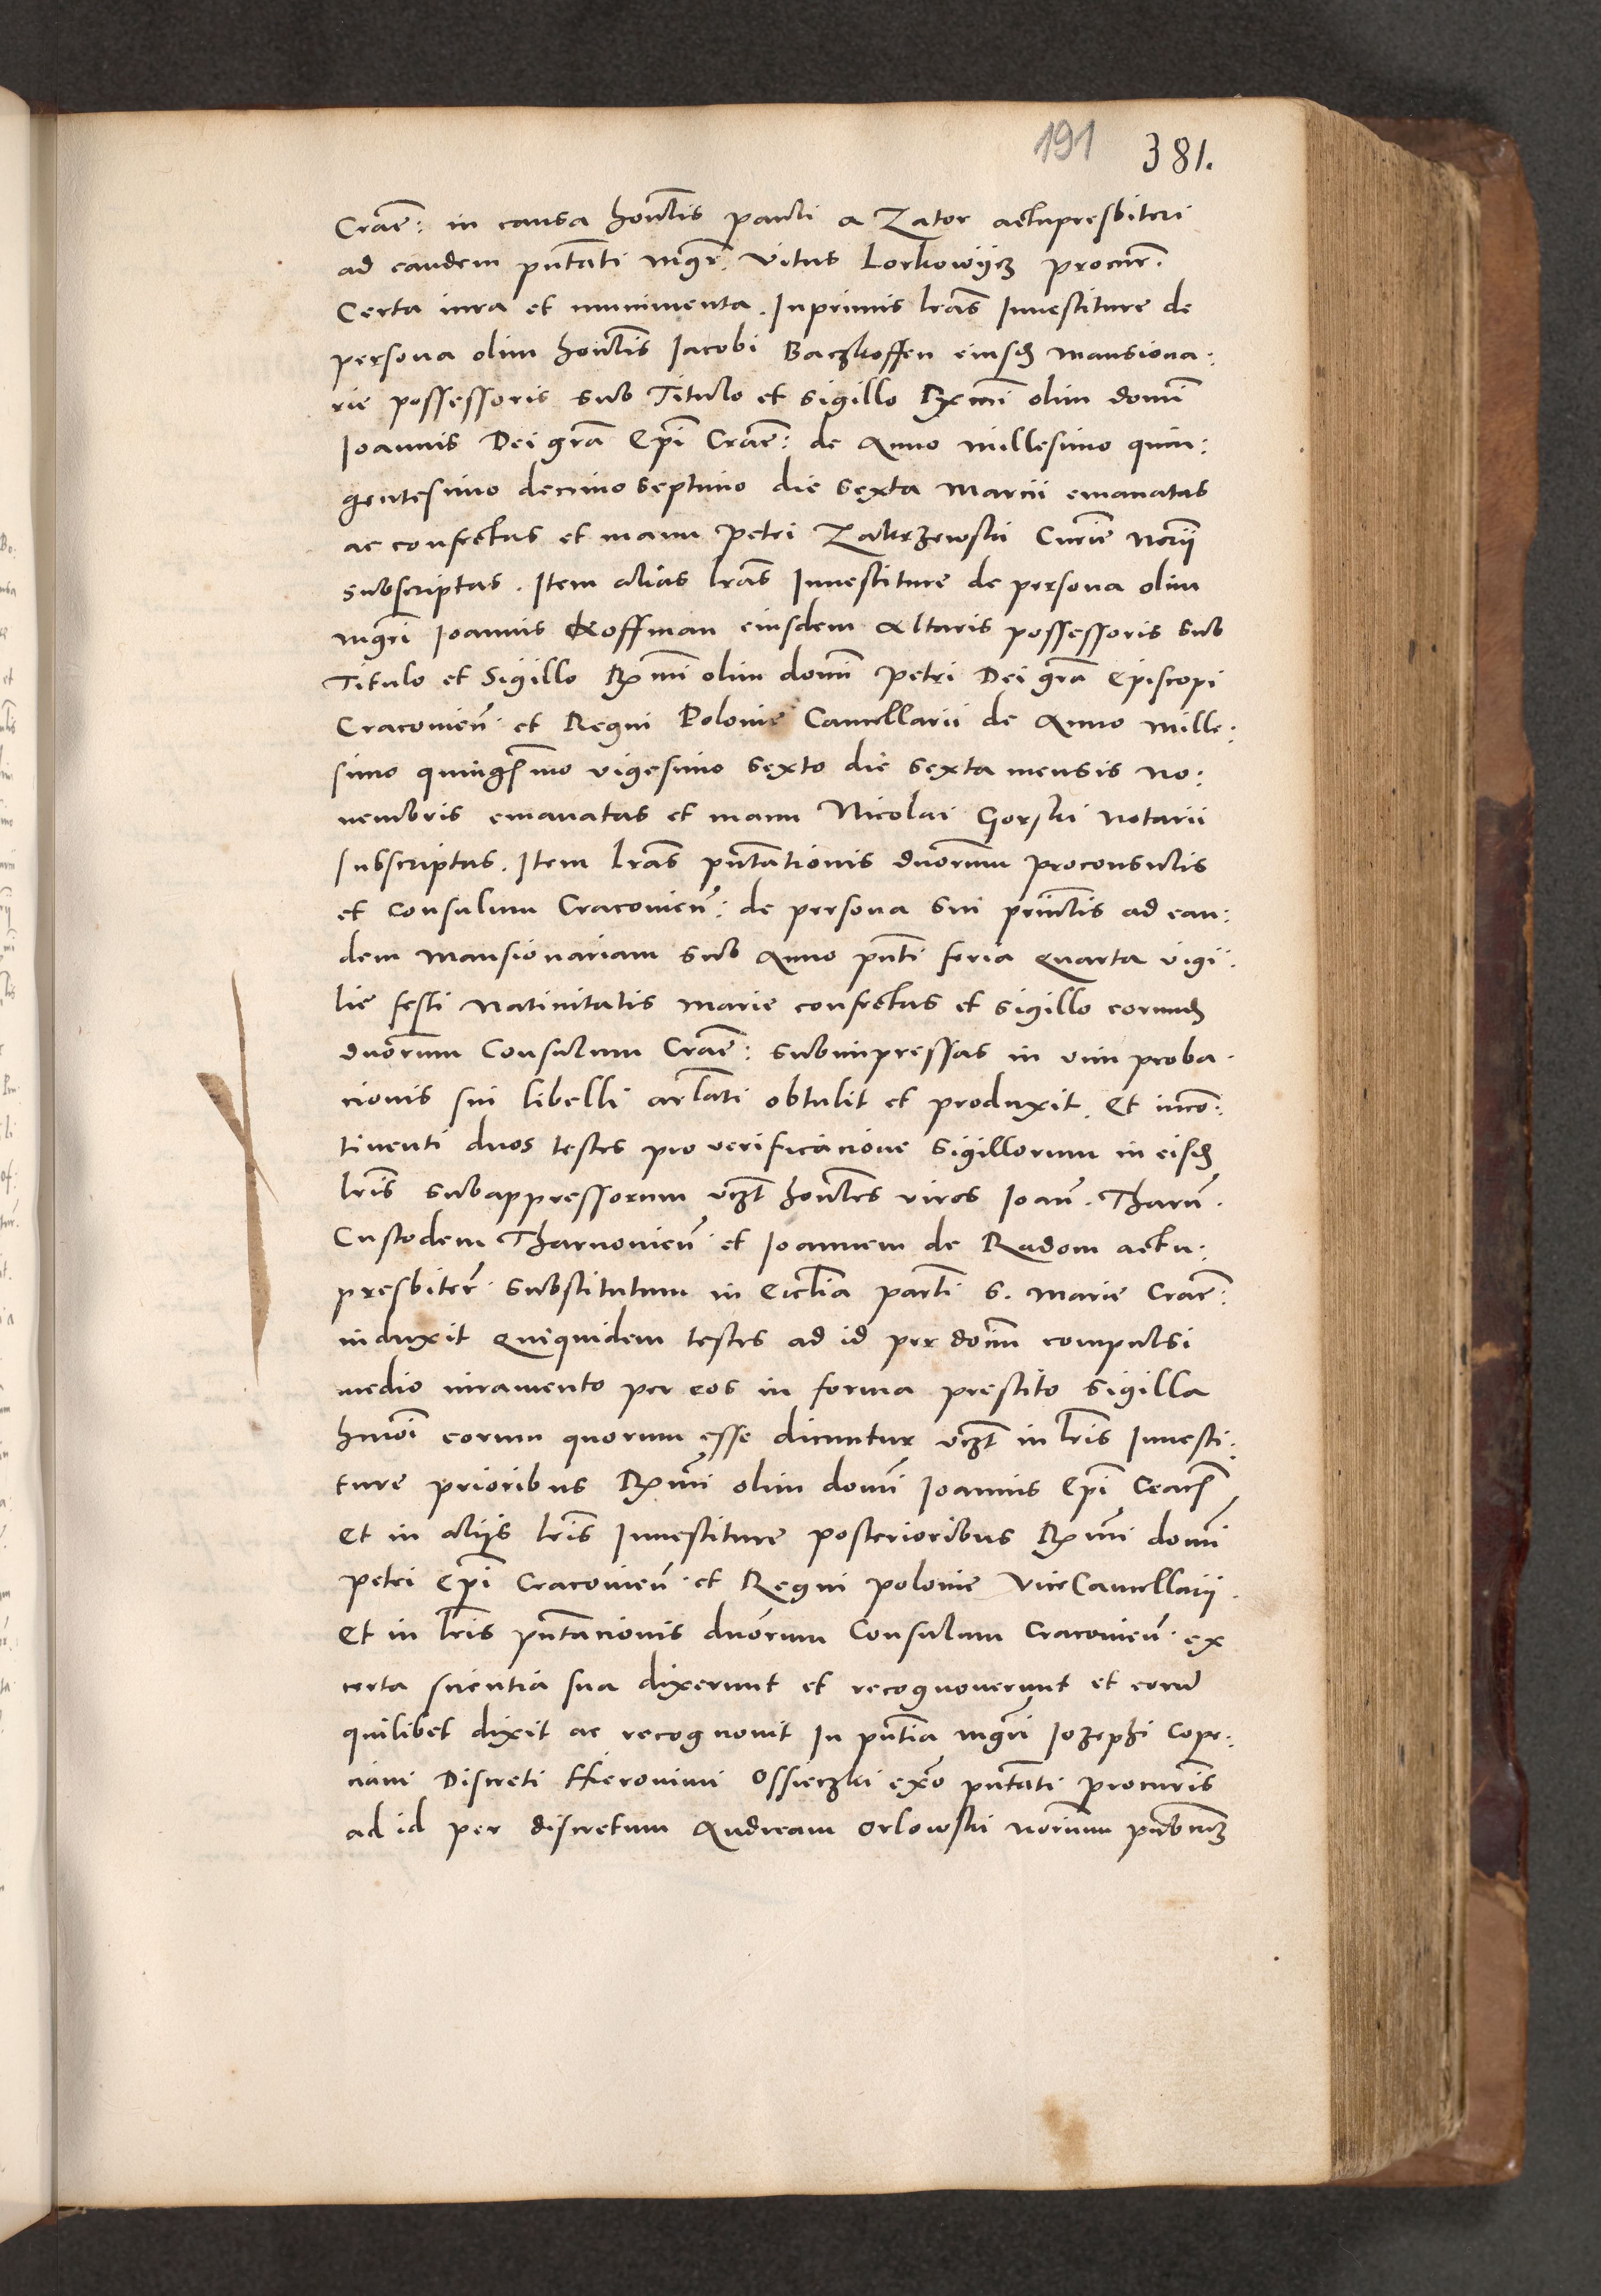 191 381.
Craẽ: in causa honl̃is pauli a Zator actupresbiteri
ad eandem pñtati mgr̃ Vitus Lorkowijcz procur̃.
Certa iura et munimenta. Inprimis lr̃as Inuestiture de
persona olim honl̃is Jacobi Baczkoffen eiusd̃ mansiona:
rie possessoris sub Titulo et sigillo Rxmi olim domi
Joannis Dei gr̃a Epĩ Craẽ: de Anno millesimo quin:
gentesimo decimo septimo die sexta marcii emanatas
ac confectas et manu Petri Zakrzewski Curie Norii
subscriptas. Item alias lr̃as Inuestiture de persona olim
mgr̃i Joannis Koffman eiusdem Altaris possessoris sub
Titulo et Sigillo Rxmi olim domi Petri Dei gr̃a Episcopi
Cracovieñ. et Regni Polonie Cancellarii de Anno mille:
simo quingẽmo vigesimo sexto die sexta mensis No:
uembris emanatas et manu Nicolai Gorski notarii
subscriptas. Item lr̃as pñtationis dñorum proconsulis
et consulum Cracovieñ: de persona sui prinl̃is ad ean:
dem mansionariam sub Anno pñti feria quarta vigi:
lie festi natiuitatis marie confectas et sigillo eorund̃
dñorum Consulum Craẽ: subimpressas in vim proba:
cionis sui libelli arl̃ati obtulit et produxit. Et incon:
tinenti duos testes pro verificacione sigillorum in eisd̃
lr̃is subappressorum vczt honl̃es viros Joañ. Tharñ.
Custodem Tharnovieñ. et Joannem de Radom actu:
presbiter̃ substitutum in Eccl̃ia parl̃i S. marie Craẽ:
induxit Quiquidem testes ad id per doñm compulsi
medio iuramento per eos in forma prestito sigilla
hmõi eorum quorum esse dicuntur vczt in lr̃is Inuesti:
ture prioribus Rxmi olim domi Joannis Epĩ Crac̃
et in aliis lr̃is Inuestiture posterioribus Rxmi domi
petri Epĩ Cracovieñ. et Regni polonie ViceCancellarij.
Et in lr̃is pñtacionis dñorum Consulum Cracovieñ. ex
certa scientia sua dixerunt et recognouerunt et eorũ
quilibet dixit ac recognouit In pñtia mgr̃i Jozephi Cope:
ciani Discreti Hieronimi Ossieczki exo pñtati procur̃is
ad id per discretum Andream Orlowski norium pubcũ